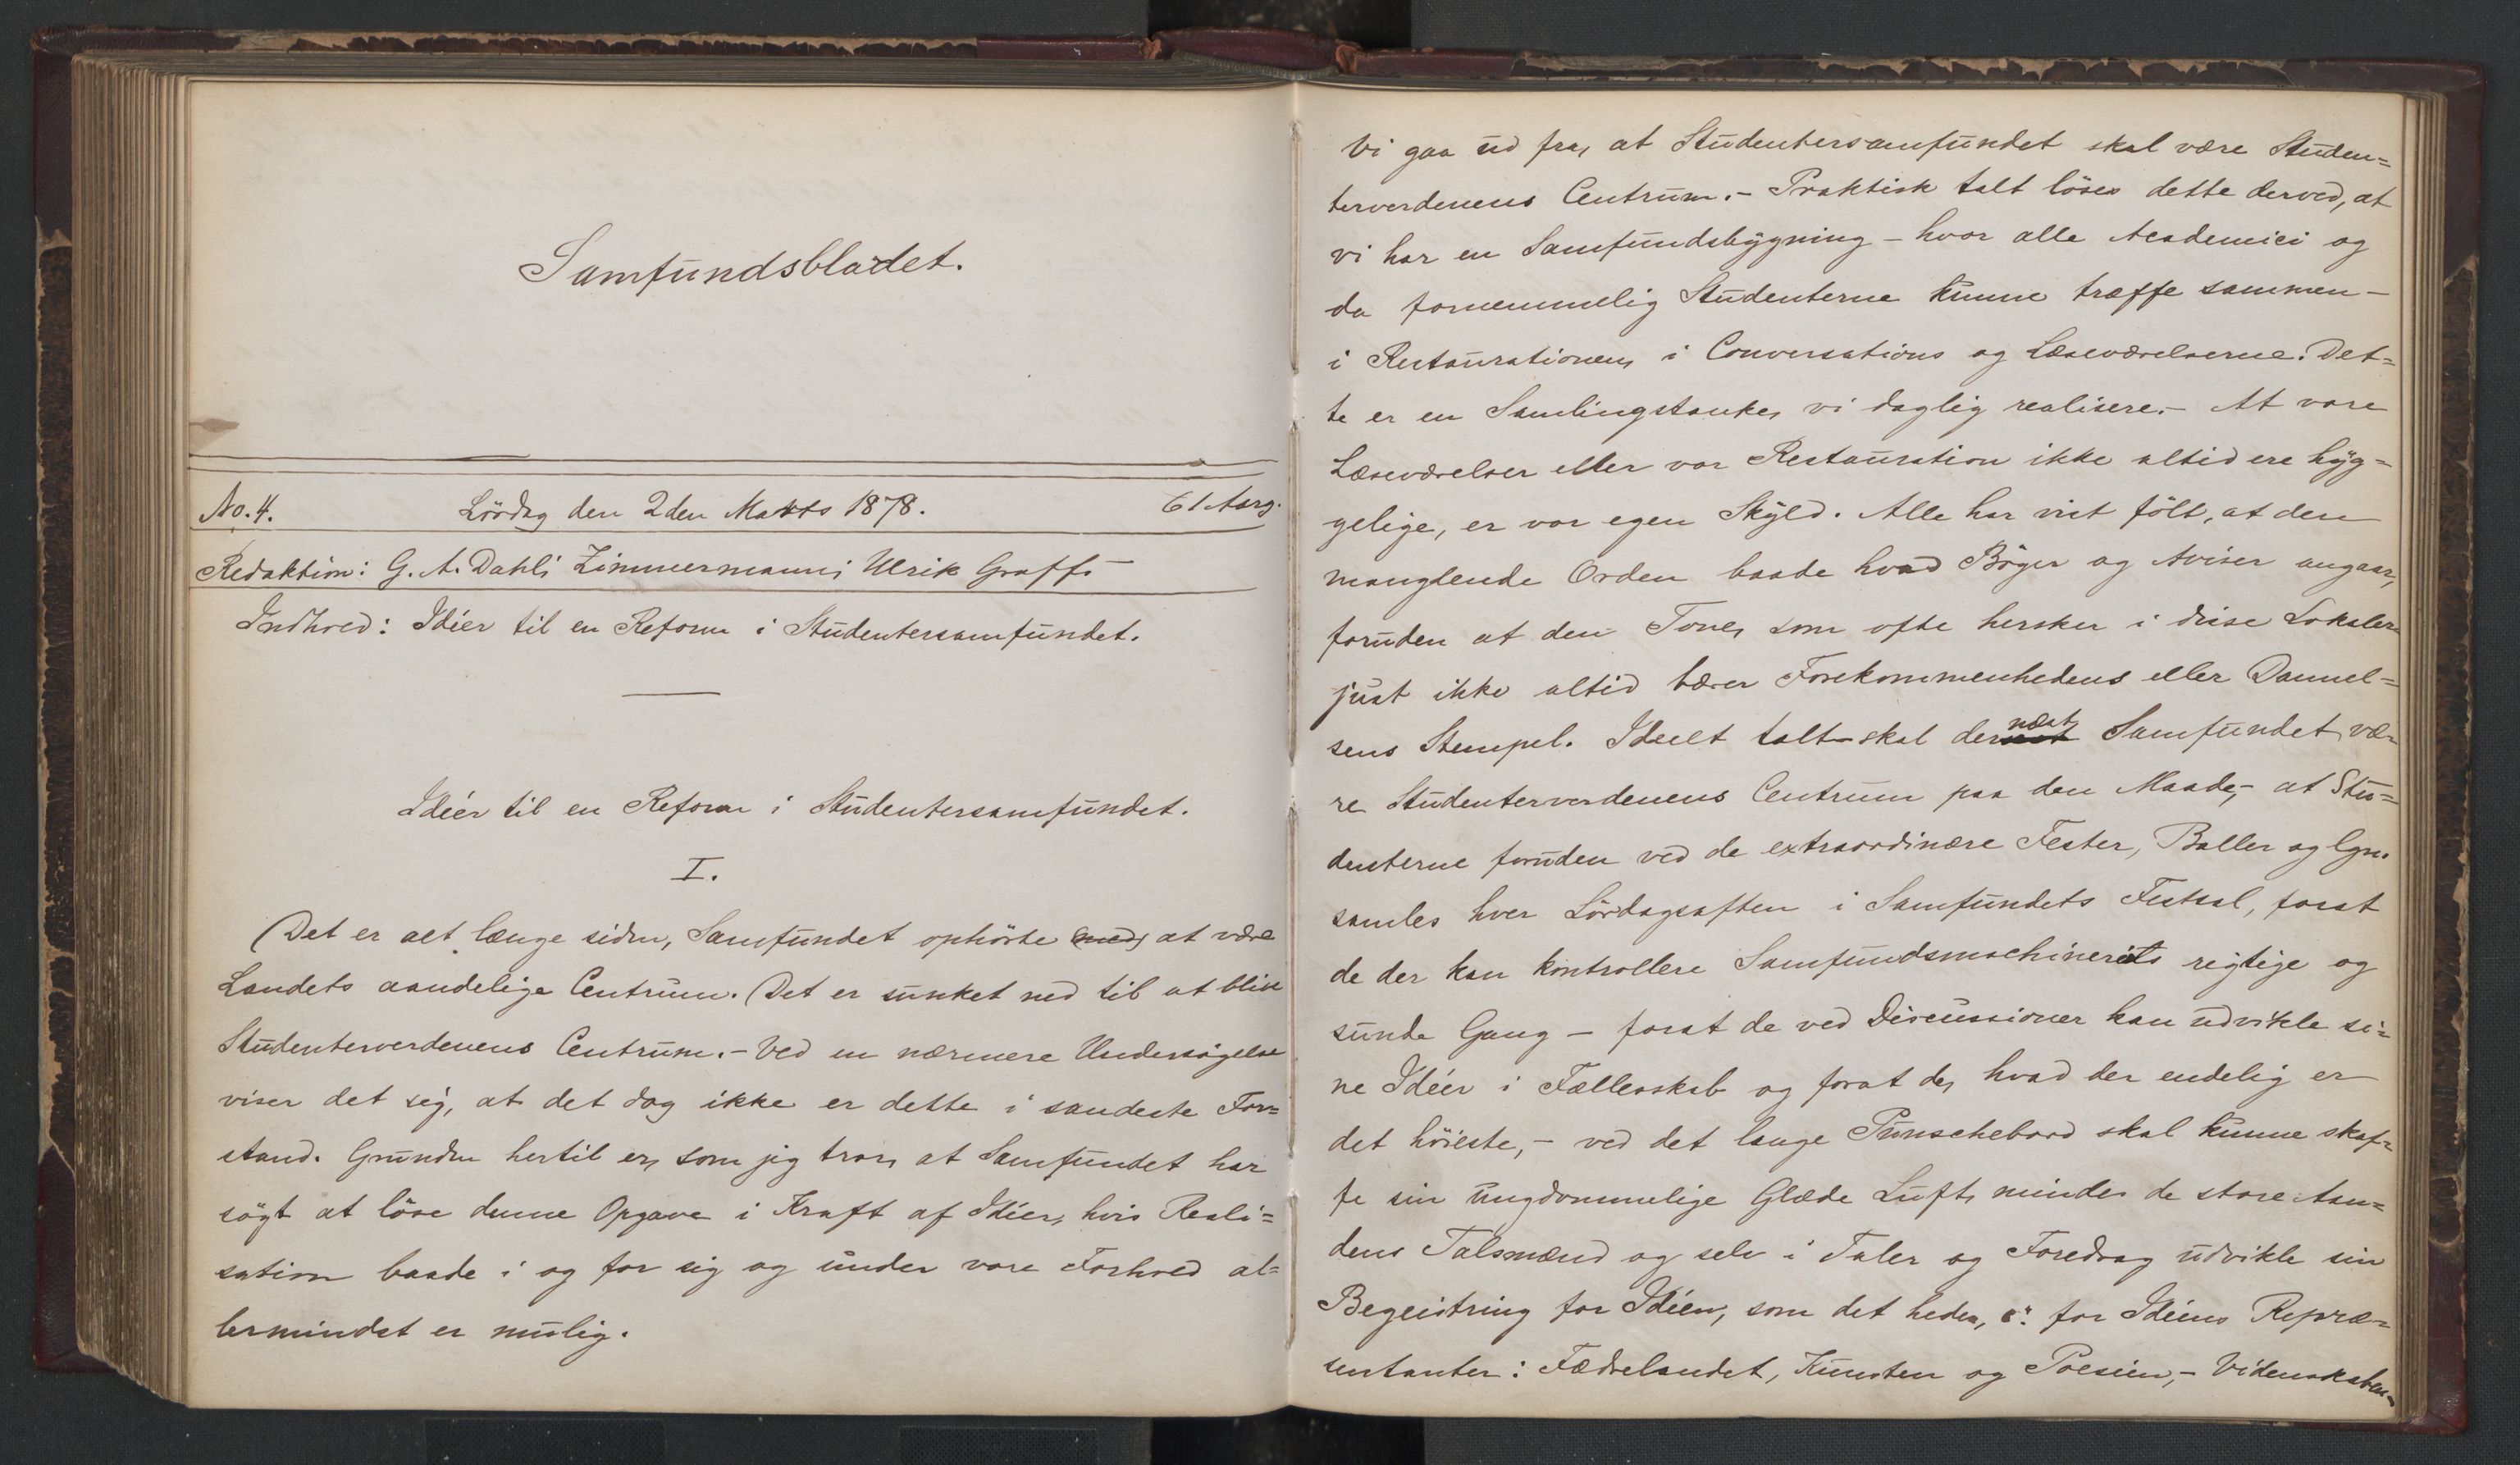 Samfundsbladet.
No. 4. Lördag den 2den Marts 1878. 61 Aarg.
Redaktion: G. A. Dahl; Zimmermann; Ulrik Graff.
Indhold: Idéer til en Reform i Studentersamfundet.
Idéer til en Reform i Studentersamfundet.
I.
Det er alt længe siden, Samfundet ophörte med at være
Landets aandelige Centrum. Det er sunket ned til at blive
Studenterverdenens Centrum. – Ved en nærmere Undersögelse
viser det sig, at det dog ikke er dette i sandeste For=
stand. Grunden hertil er, som jeg tror, at Samfundet har
sögt at löse denne Opgave i Kraft af Idéer, hvis Reali=
sation baade i og for sig og under vore Forhold al=
lermindst er mulig.
Vi gaa ud fra, at Studentersamfundet skal være Studen=
terverdenens Centrum. – Praktisk talt löses dette derved, at
vi har en Samfundsbygning – hvor alle Academici og
da fornemmelig Studenterne kunne træffe sammen –
i Restaurationen, i Conversations og Læseværelserne. Det=
te er en Samlingstanke, vi daglig realisere. – At vore
Læseværelser eller vor Restauration ikke altid ere hyg=
gelige, er vor egen Skyld. Alle har vist fölt, at den
manglende Orden baade hvad Böger og Aviser angaar,
foruden at den Tone, som ofte hersker i disse Lokaler
just ikke altid bærer Forekommenhedens eller Dannel=
sens Stempel. Ideelt talt – skal dernæst Samfundet væ=
re Studenterverdenens Centrum paa den Maade, – at Stu=
denterne foruden ved de extraordinære Fester, Baller og lgn.
samles hver Lördagsaften i Samfundets Festsal, forat
de der kan kontrollere Samfundsmachineriets rigtige og
sunde Gang – forat de ved Discussioner kan udvikle si=
ne Idéer i Fællesskab og forat de, hvad der endelig er
det höieste, – ved det lange Punschebord skal kunne skaf=
fe sin ungdommelige Glæde Luft, mindes de store Aan=
dens Talsmænd og selv i Taler og Foredrag udvikle sin
Begeistring for Idéen, som det heder, ɔ: for Idéens Repræ=
sentanter: Fædrelandet, Kunsten og Poesien, – Videnskaben –